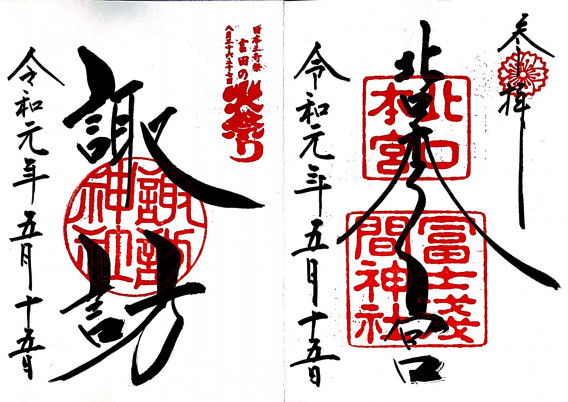 参拝
北口本宮
北口
本宮
冨士淺
間神社
令和元年五月十五日
日本三奇祭
八月二十六二十七日
吉田の火祭り
諏訪
諏訪
神社
令和元年五月十五日